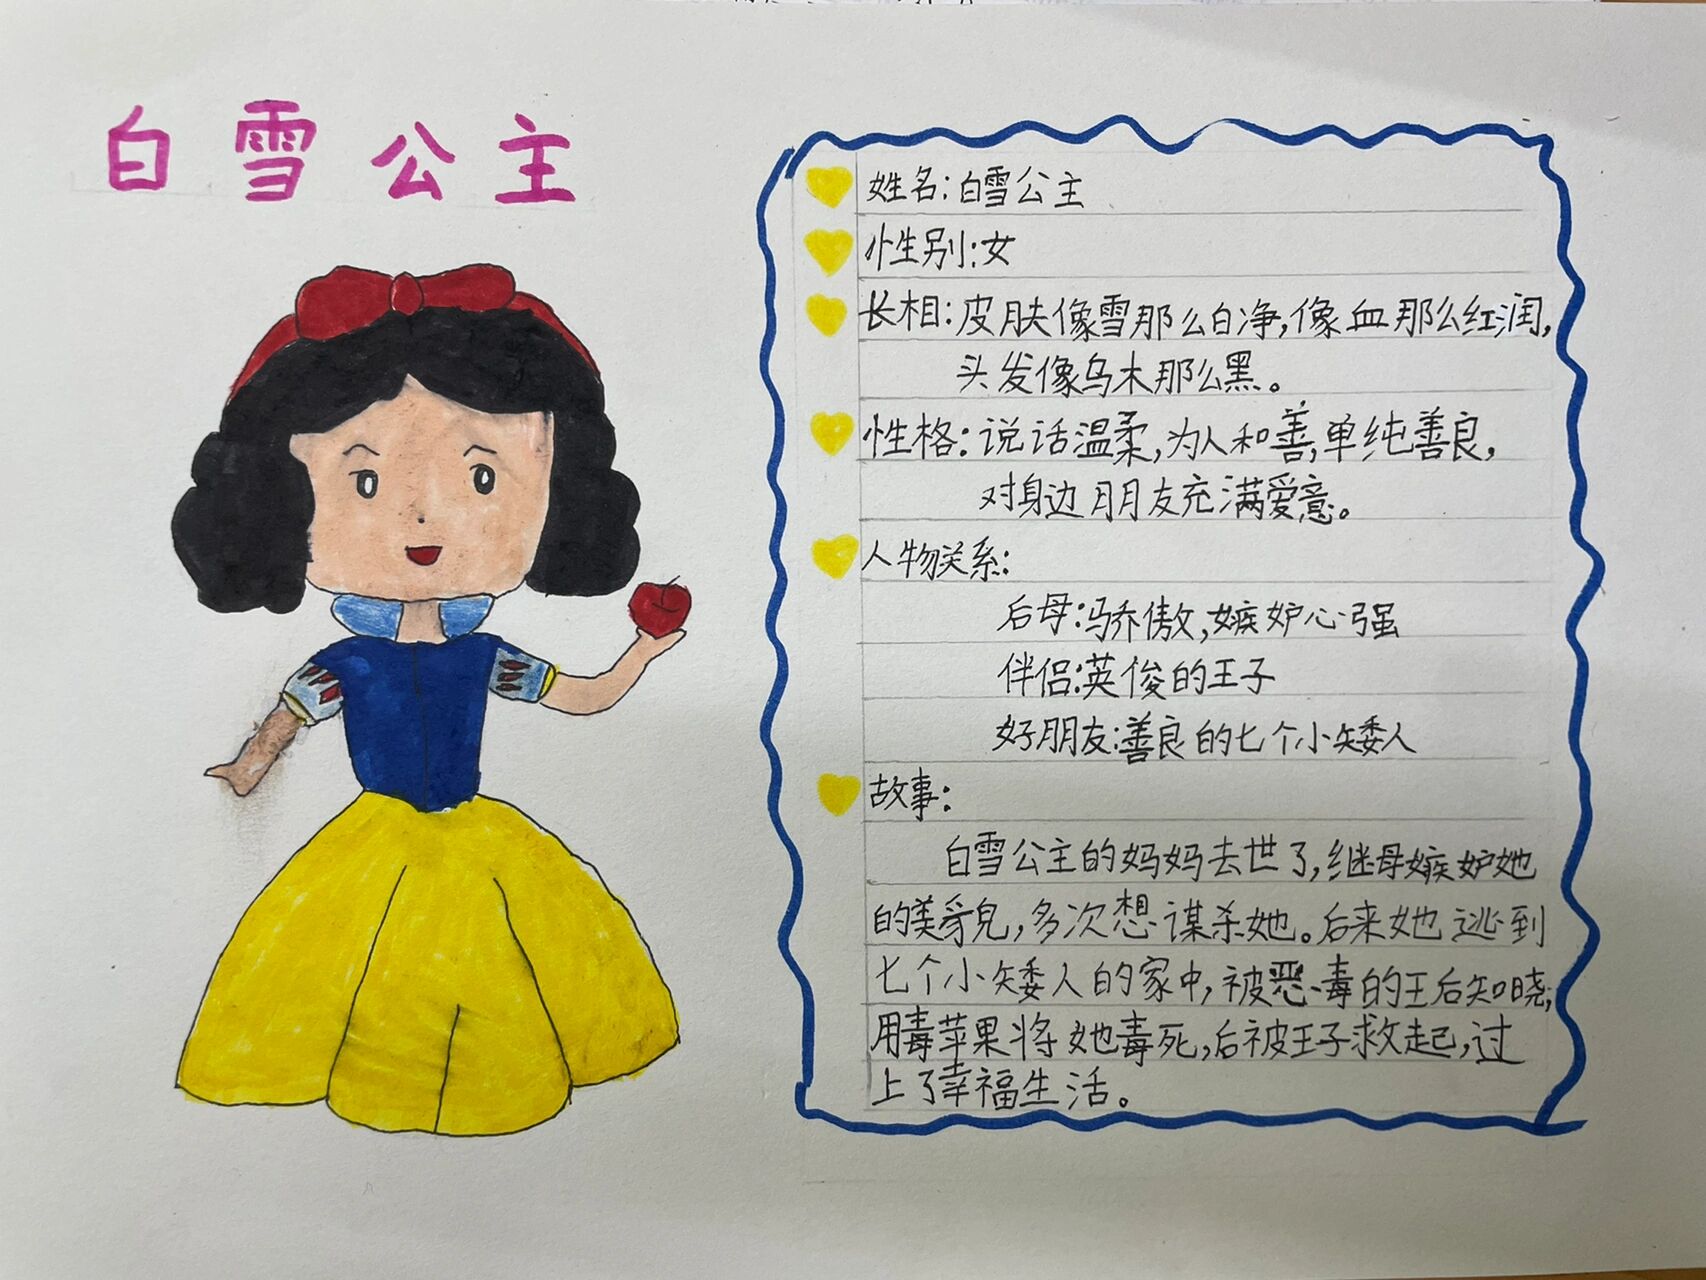 白雪公主
姓名:白雪公主
性别:女
长相:皮肤像雪那么白净,像血那么红润,
头发像乌木那么黑。
性格:说话温柔,为人和善,单纯善良,
对身边朋友充满爱意。
人物关系:
后母:骄傲,嫉妒心强
伴侣:英俊的王子
好朋友:善良的七个小矮人
故事:
白雪公主的妈妈去世了,继母嫉妒她
的美貌,多次想谋杀她。后来她逃到
七个小矮人的家中,被恶毒的王后知晓,
用毒苹果将她毒死,后被王子救起,过
上了幸福生活。